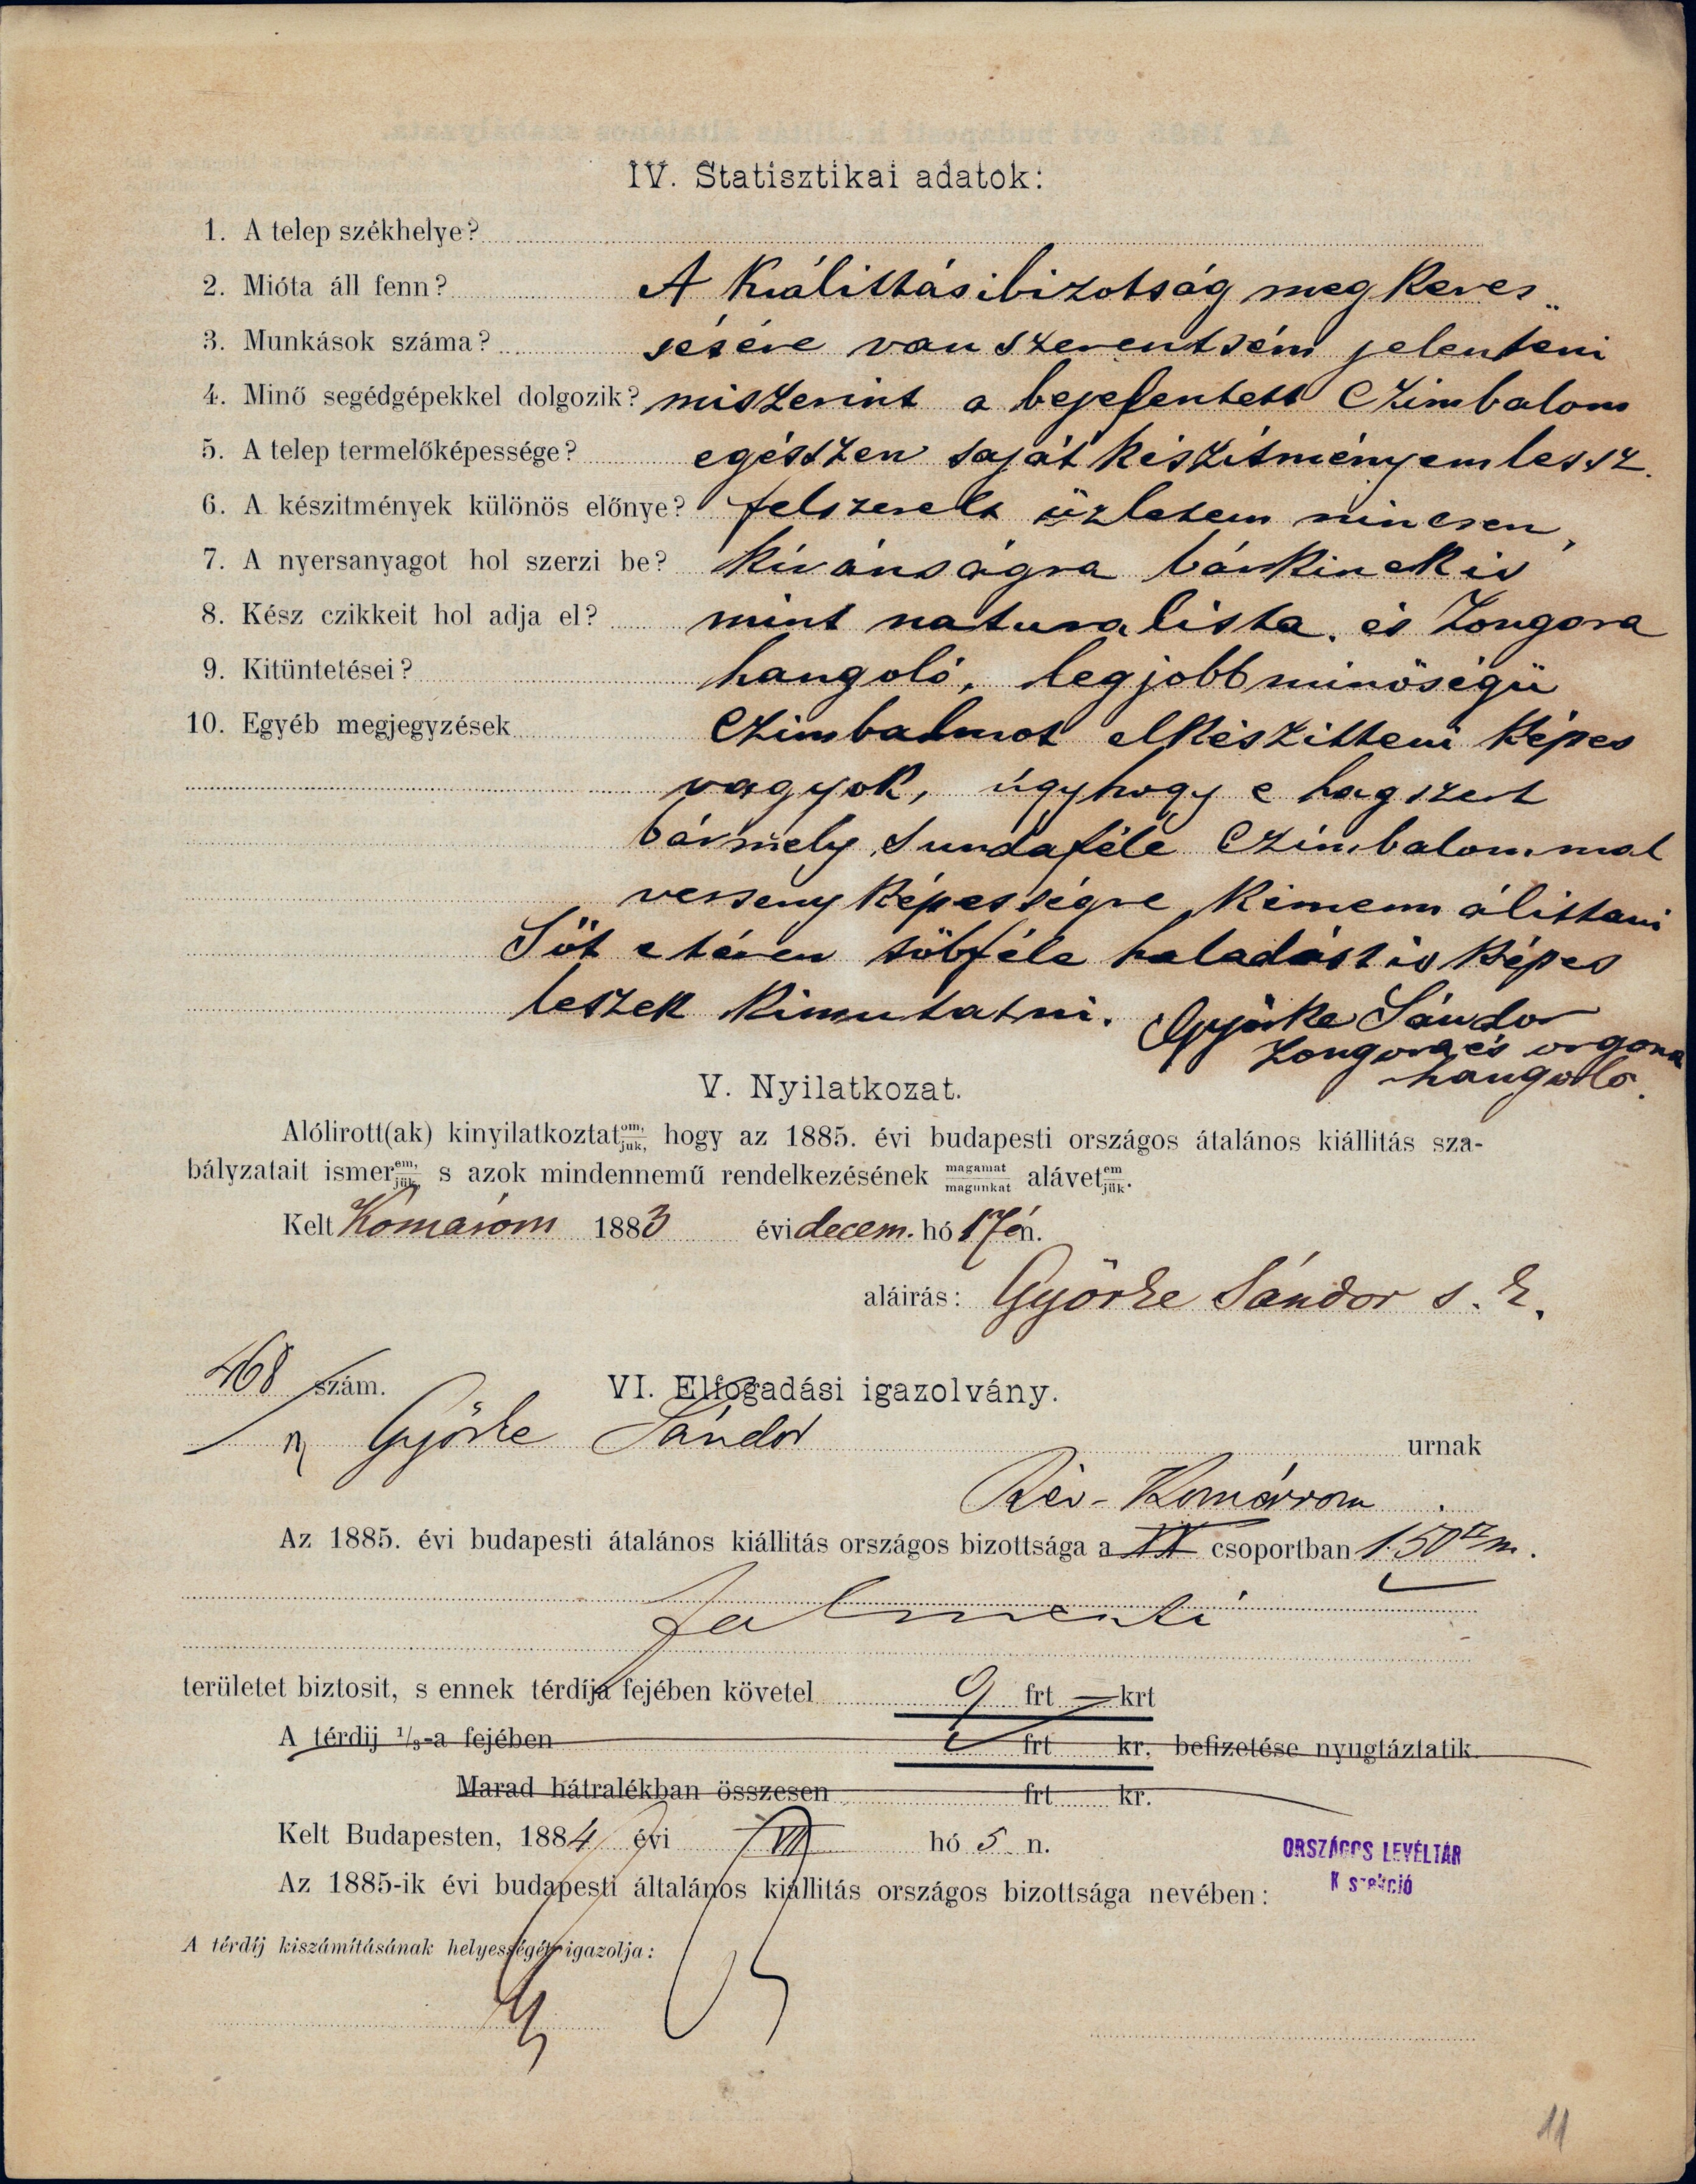 IV. Statisztikai adatok:
1. A telep székhelye?
2. Mióta áll fenn? A Kiálittásibizotság meg keres„
3. Munkások száma? sésére van szerentsém jelenteni
4. Minő segédgépekkel dolgozik? miszerint a bejelentett Czimbalom
5. A telep termelőképessége? egésszen saját készitményem lessz.
6. A készitmények különös előnye? felszerelt üzletem nincsen,
7. A nyersanyagot hol szerzi be? kivánságra bárkinek is
8. Kész czikkeit hol adja el? mint naturalista. és Zongora
9. Kitüntetései? hangoló, legjobb minöségü
10. Egyéb megjegyzések Czimbalmot elkészitteni képes
vagyok, úgyhogy e hagszert
bármely Sundaféle Czimbalommal
verseny képességre kimerem álittani
Söt e téren többféle haladást is képes
leszek kimutatni. Györke Sándor
zongora és orgona
hangoló.
V. Nyilatkozat.
Alólirott(ak) kinyilatkoztat om, juk, hogy az 1885. évi budapesti országos átalános kiállitás sza-
bályzatait ismer em, jük, s azok mindennemű rendelkezésének magamat magunkat alávet em jük.
Kelt Komárom 1883 évi decem. hó 17én.
aláirás: Györke Sándor s. k.
468 szám. VI. Elfogadási igazolvány.
Györke Sándor urnak
Rév-Komárom
Az 1885. évi budapesti átalános kiállitás országos bizottsága a XX csoportban 1.50 □m.
falmenti
területet biztosit, s ennek térdíja fejében követel 9 frt — krt
A térdij 1/3-a fejében frt kr. befizetése nyugtáztatik.
Marad hátralékban összesen frt kr.
Kelt Budapesten, 1884 évi VII hó 5 n.
ORSZÁGOS LEVÉLTÁR
K szekció
Az 1885-ik évi budapesti általános kiállitás országos bizottsága nevében:
A térdíj kiszámításának helyességét igazolja:
11